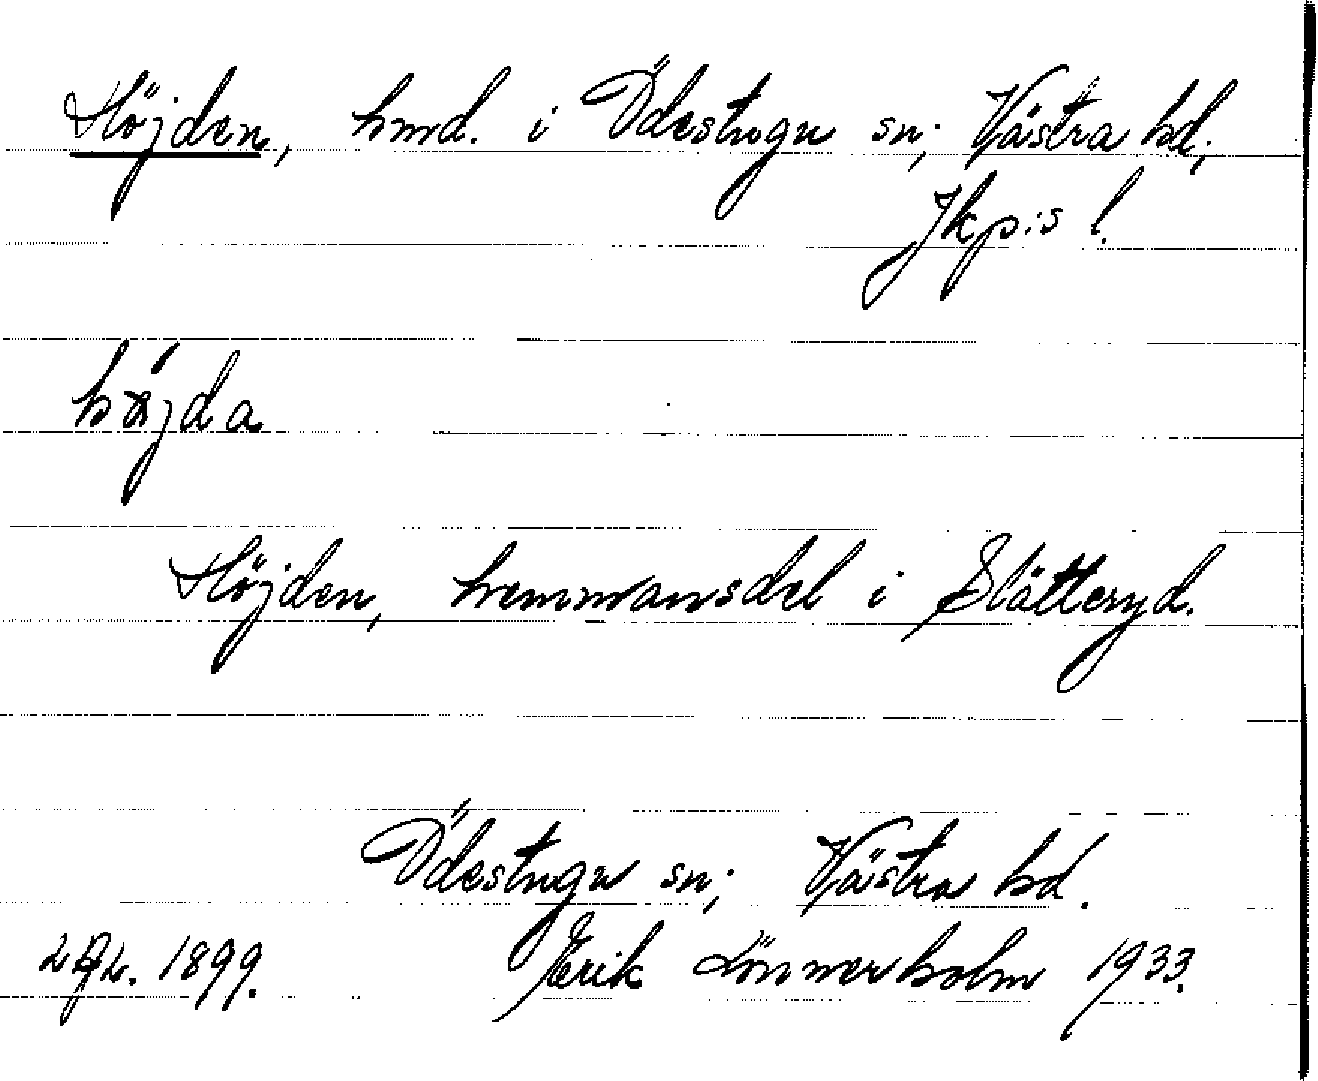 Höjden, hmd. i Ödestugu sn; Västra hd;
Jkp:s l.
höjda
Höjden, hemmansdel i Slätteryd.
Ödestugu sn; Västra hd.
1899. Erik Lönnerholm 1933.